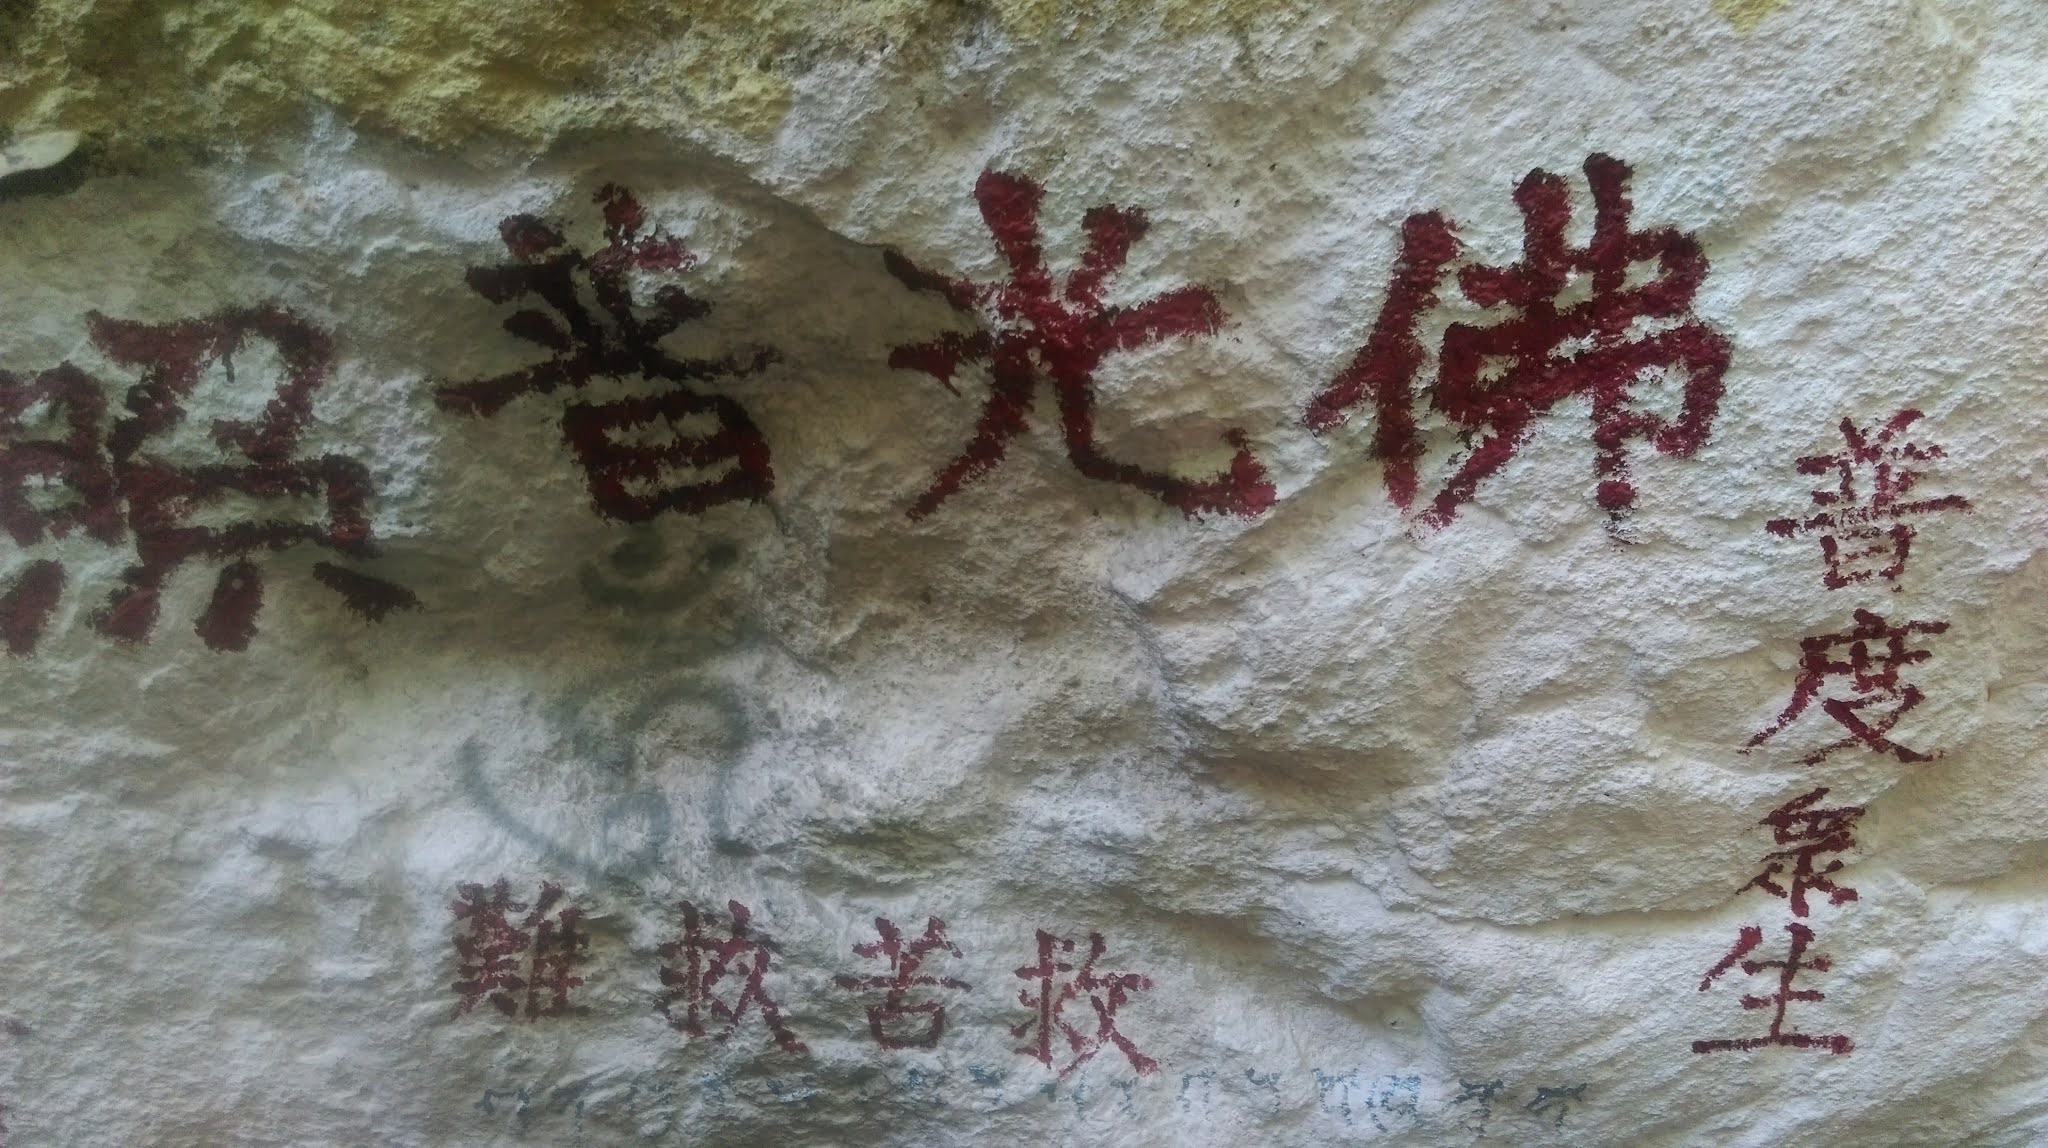 佛光普照
普度眾生
救苦救難